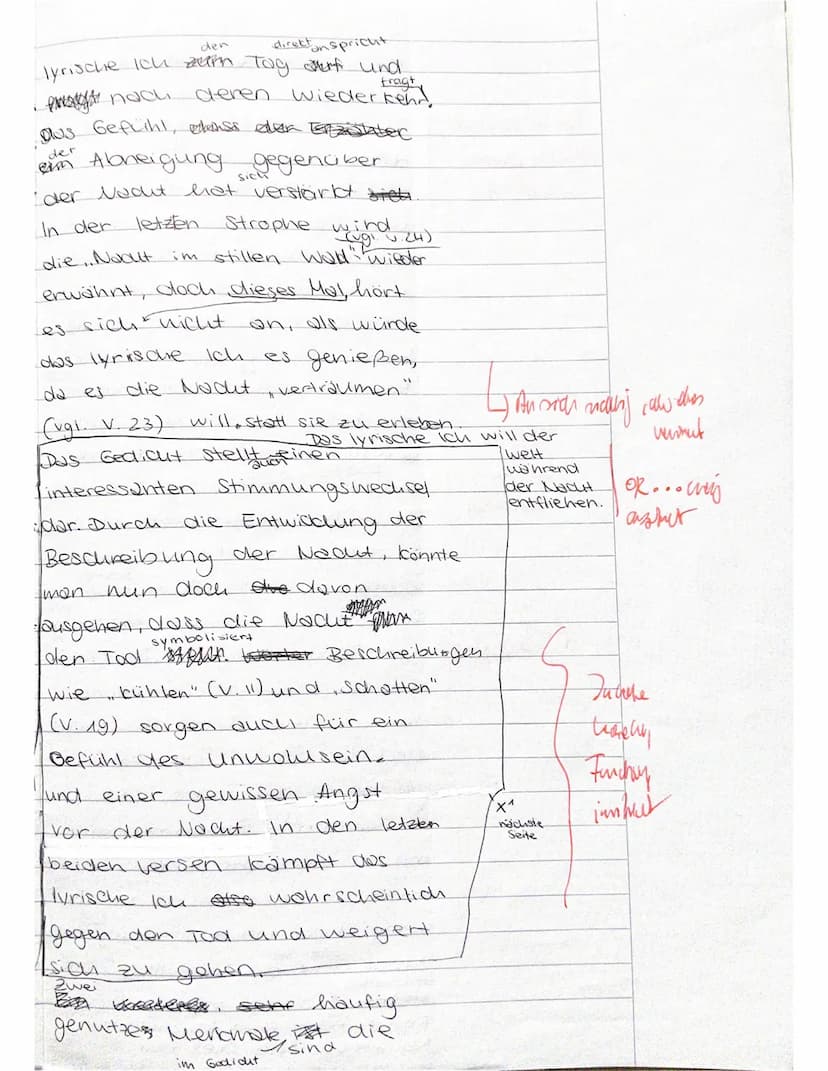 den direkt anspricht
lyrische Ich zum Tag auf und
fragt
nach deren Wiederkehr.
das Gefühl, dass der Erzähler
der
ein Abneigung gegenüber
sich
der Nacht hat verstärkt sich.
In der letzten Strophe wird
(vgl. V. 24)
die „Nacht im stillen Wald" wieder
erwähnt, doch dieses Mal, hört
es sich nicht an, als würde
das lyrische Ich es genießen,
da es die Nacht „verträumen"
(vgl. V. 23) will, statt sie zu erleben.
Das lyrische Ich will der
Welt
während
der Nacht
entfliehen.
An sich
OK...
Das Gedicht stellt einen
auch
interessanten Stimmungswechsel
dar. Durch die Entwicklung der
Beschreibung der Nacht, könnte
man nun doch davon
ausgehen, dass die Nacht
symbolisiert
den Tod Beschreibungen
wie „kühlen" (V. 11) und „Schatten"
(V. 19) sorgen auch für ein
Gefühl des Unwohlsein.
und einer gewissen Angst
vor der Nacht. In den letzten
beiden Versen kämpft das
lyrische Ich also wahrscheinlich
gegen den Tod und weigert
sich zu gehen.
x¹
nächste
Seite
zwei
sehr häufig
genutzes Merkmale ist die
im Gedicht sind